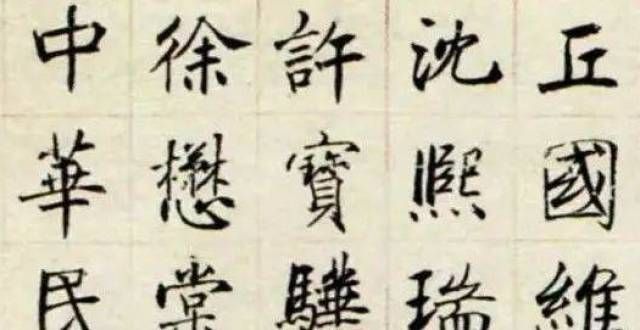 丘國維
沈熙瑞
許寶驊
徐懋棠
中華民